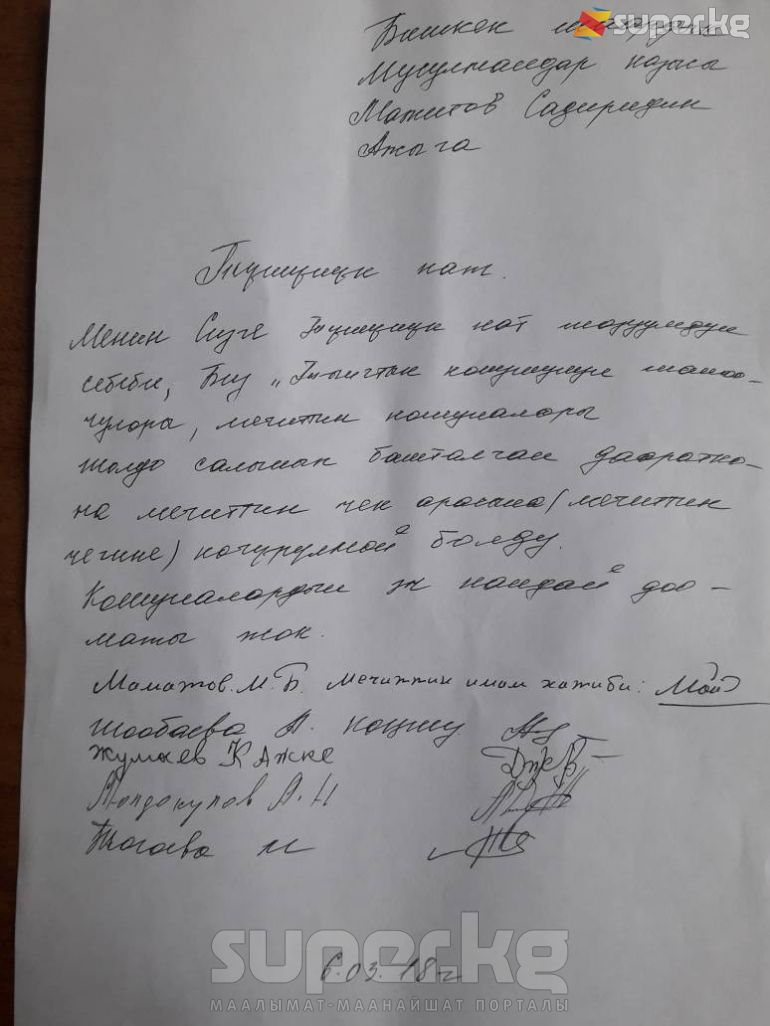 superkg
Бишкек шаардык
Мусулмандар казысы
Мажитов Садиридин
Ажыга
Түшүнүк кат.
Менин Сизге түшүнүк кат жазуумдун
себеби, Биз "Тынчтык көчүнүн жашоо-
чулары, мечитин кошуналары
жолдо салынып башталган даараткa-
на мечиттин чек арасына (мечиттин
чегине) көчүрүлмөй болду.
Кошуналардын эч кандай доо-
маты жок.
Маматов. М.Б. Мечиттин имам хатиби:
Жообаева А. кошу
Жумаев К Аже
Молдокулов А.Н
Тагаева
6.03.18-г
superkg
МААЛЫМАТ-МААНАЙШАТ ПОРТАЛЫ